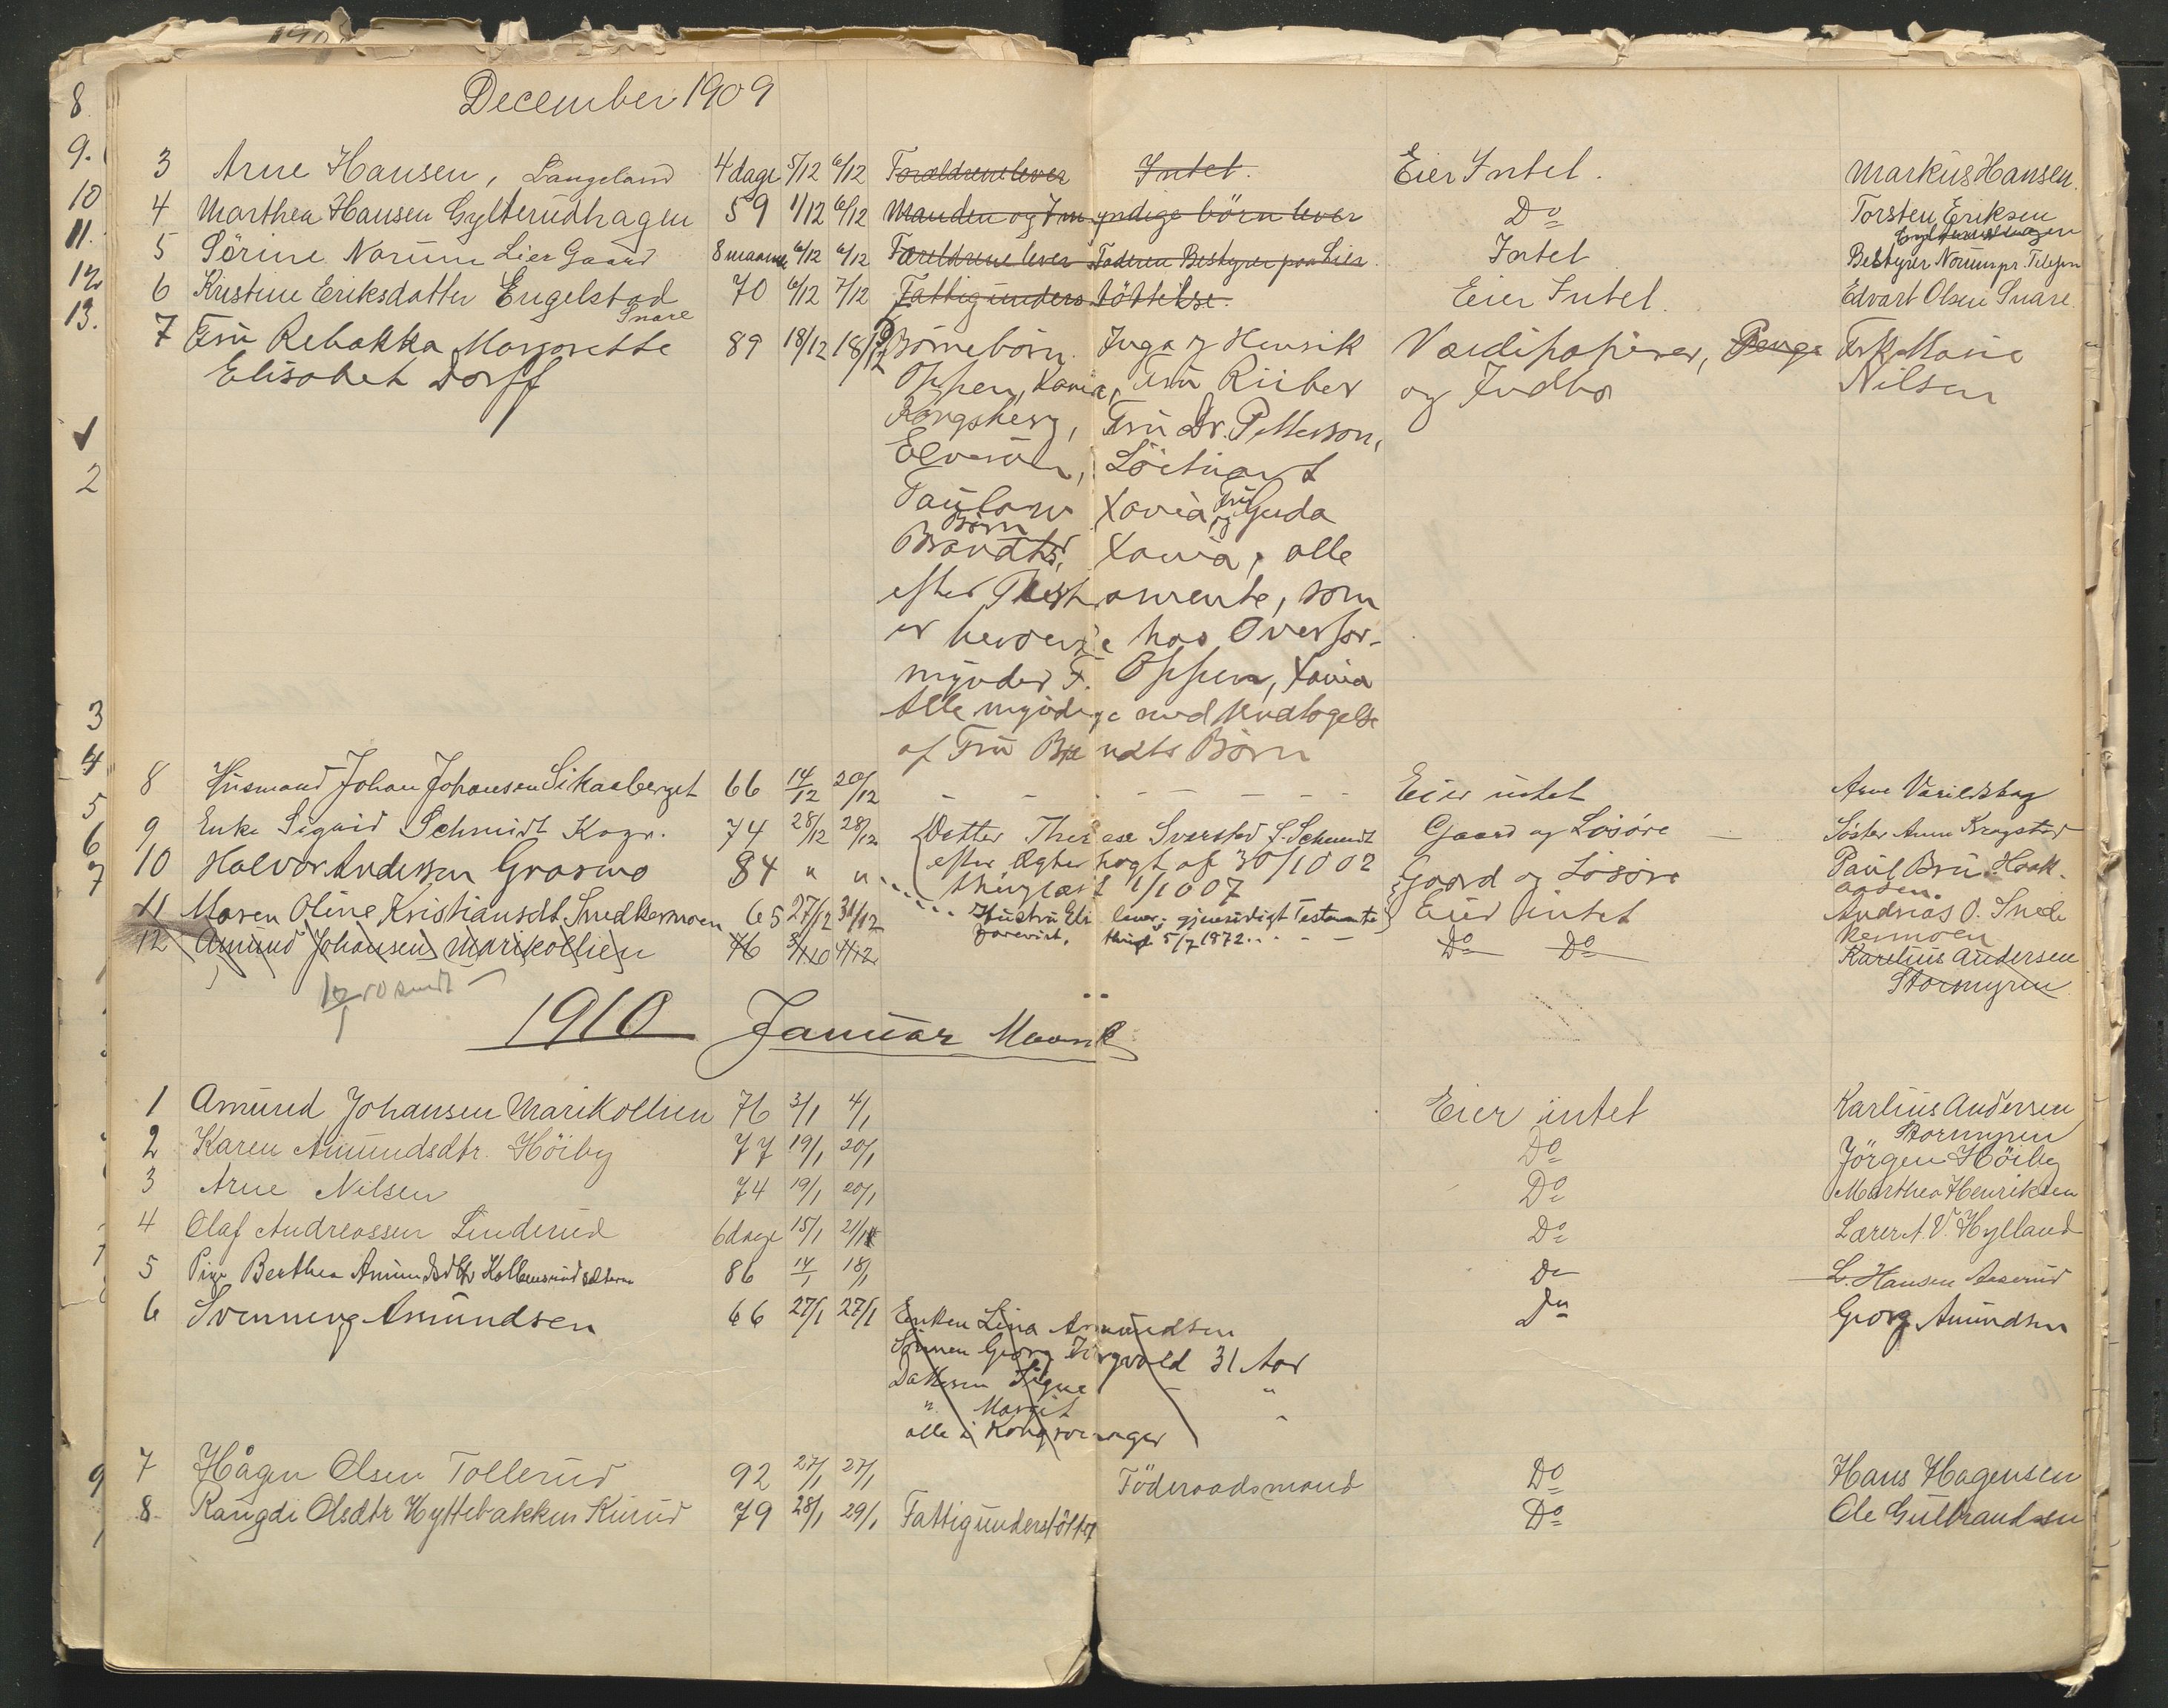 December 1909
3 Arne Hansen, Langeland 4 dage 5/12 6/12 Forældrene lever Intet. Eier Intet. Markus Hansen.
4 Marthea Hansen Gylterudhagen 59 1/12 6/12 Manden og 7 myndige börn lever Do Torsten Eriksen
Gylterudhagen
5 Sörine Norum Lier Gaard 8 maaneder 6/12 6/12 Forældrene lever Faderen Bestyrer paa Lier. Intet Bestyrer Norum pr. Telefon
6 Kristine Eriksdatter Engelstad 70 6/12 7/12 Fattigunderstöttelse. Eier Intet. Edvart Olsen Snare
Snare
7 Fru Rebakka Margrethe 89 18/12 18/12 Börnebörn. Inga og Henrik Værdipapirer, Penge Frk. Marie
Elisabet Dorff Oppen, Xania, Fru Riiber og Indbo Nilsen
Kongsberg, Fru Dr. Petterson,
Elverum, Löitnant
Paulson Xania og Fru Guda
Brandts Börn, Xania, alle
efter Testamente, som
er beroende hos Overfor-
mynder F. Oppen, Xania
Alle myndige med Undtagelse
af Fru Brandts Börn
8 Husmand Johan Johansen Sikaaberget 66 14/12 20/12 - - - - - - - Eier intet Arne Varildskog
9 Enke Sigrid Schmidt Kogr. 74 28/12 28/12 Datter Therese Svarstad f. Schmidt Gaard og Lösöre Söster Anna Kragstad
10 Halvor Andersen Grasmo 84 " " efter Ægtepagt af 30/10 02 Gaard og Lösöre Paul Bru Haak-
thinglæst 1/10 07 aasen.
11 Maren Oline Kristiansdt. Snedkermoen 65 27/12 31/12 Hustru Eli lever; gjensidigt Testamente Eier intet Andreas O. Sned
thingl. 5/7 1872 kermoen
12 Amund Johansen Marikollien 76 3/1 10 4/12 Do Do Karelius Andersen
Stormyren
1910 Januar Maaned
1 Amund Johansen Marikollien 76 3/1 4/1 Eier intet Karlius Andersen
Stormyren
2 Karen Amundsdtr. Höiby 77 19/1 20/1 Do Jörgen Höiby
3 Arne Nilsen 74 19/1 20/1 Do Marthea Henriksen
4 Olaf Andreassen Linderud 6 dage 15/1 21/1 Do Lærer A. V. Hylland
5 Pige Berthea Amundsdtr 86 14/1 18/1 Do L. Hansen Aaserud
6 Svenneng Amundsen 66 27/1 27/1 Enken Lina Amundsen Do Georg Amundsen
Sönnen Georg Torgvald 31 Aar
Datteren Signe - "
" Margit "
alle i Kongsvinger
7 Hågen Olsen Tollerud 92 27/1 27/1 Föderaadsmand Do Hans Hagensen
8 Rangdi Olsdtr Hyttebakken Kurud 79 28/1 29/1 Fattigunderstöttet Do Ole Gulbrandsen
8
9.
10
11.
12
13.
1
2
3
4
5
6
7
9